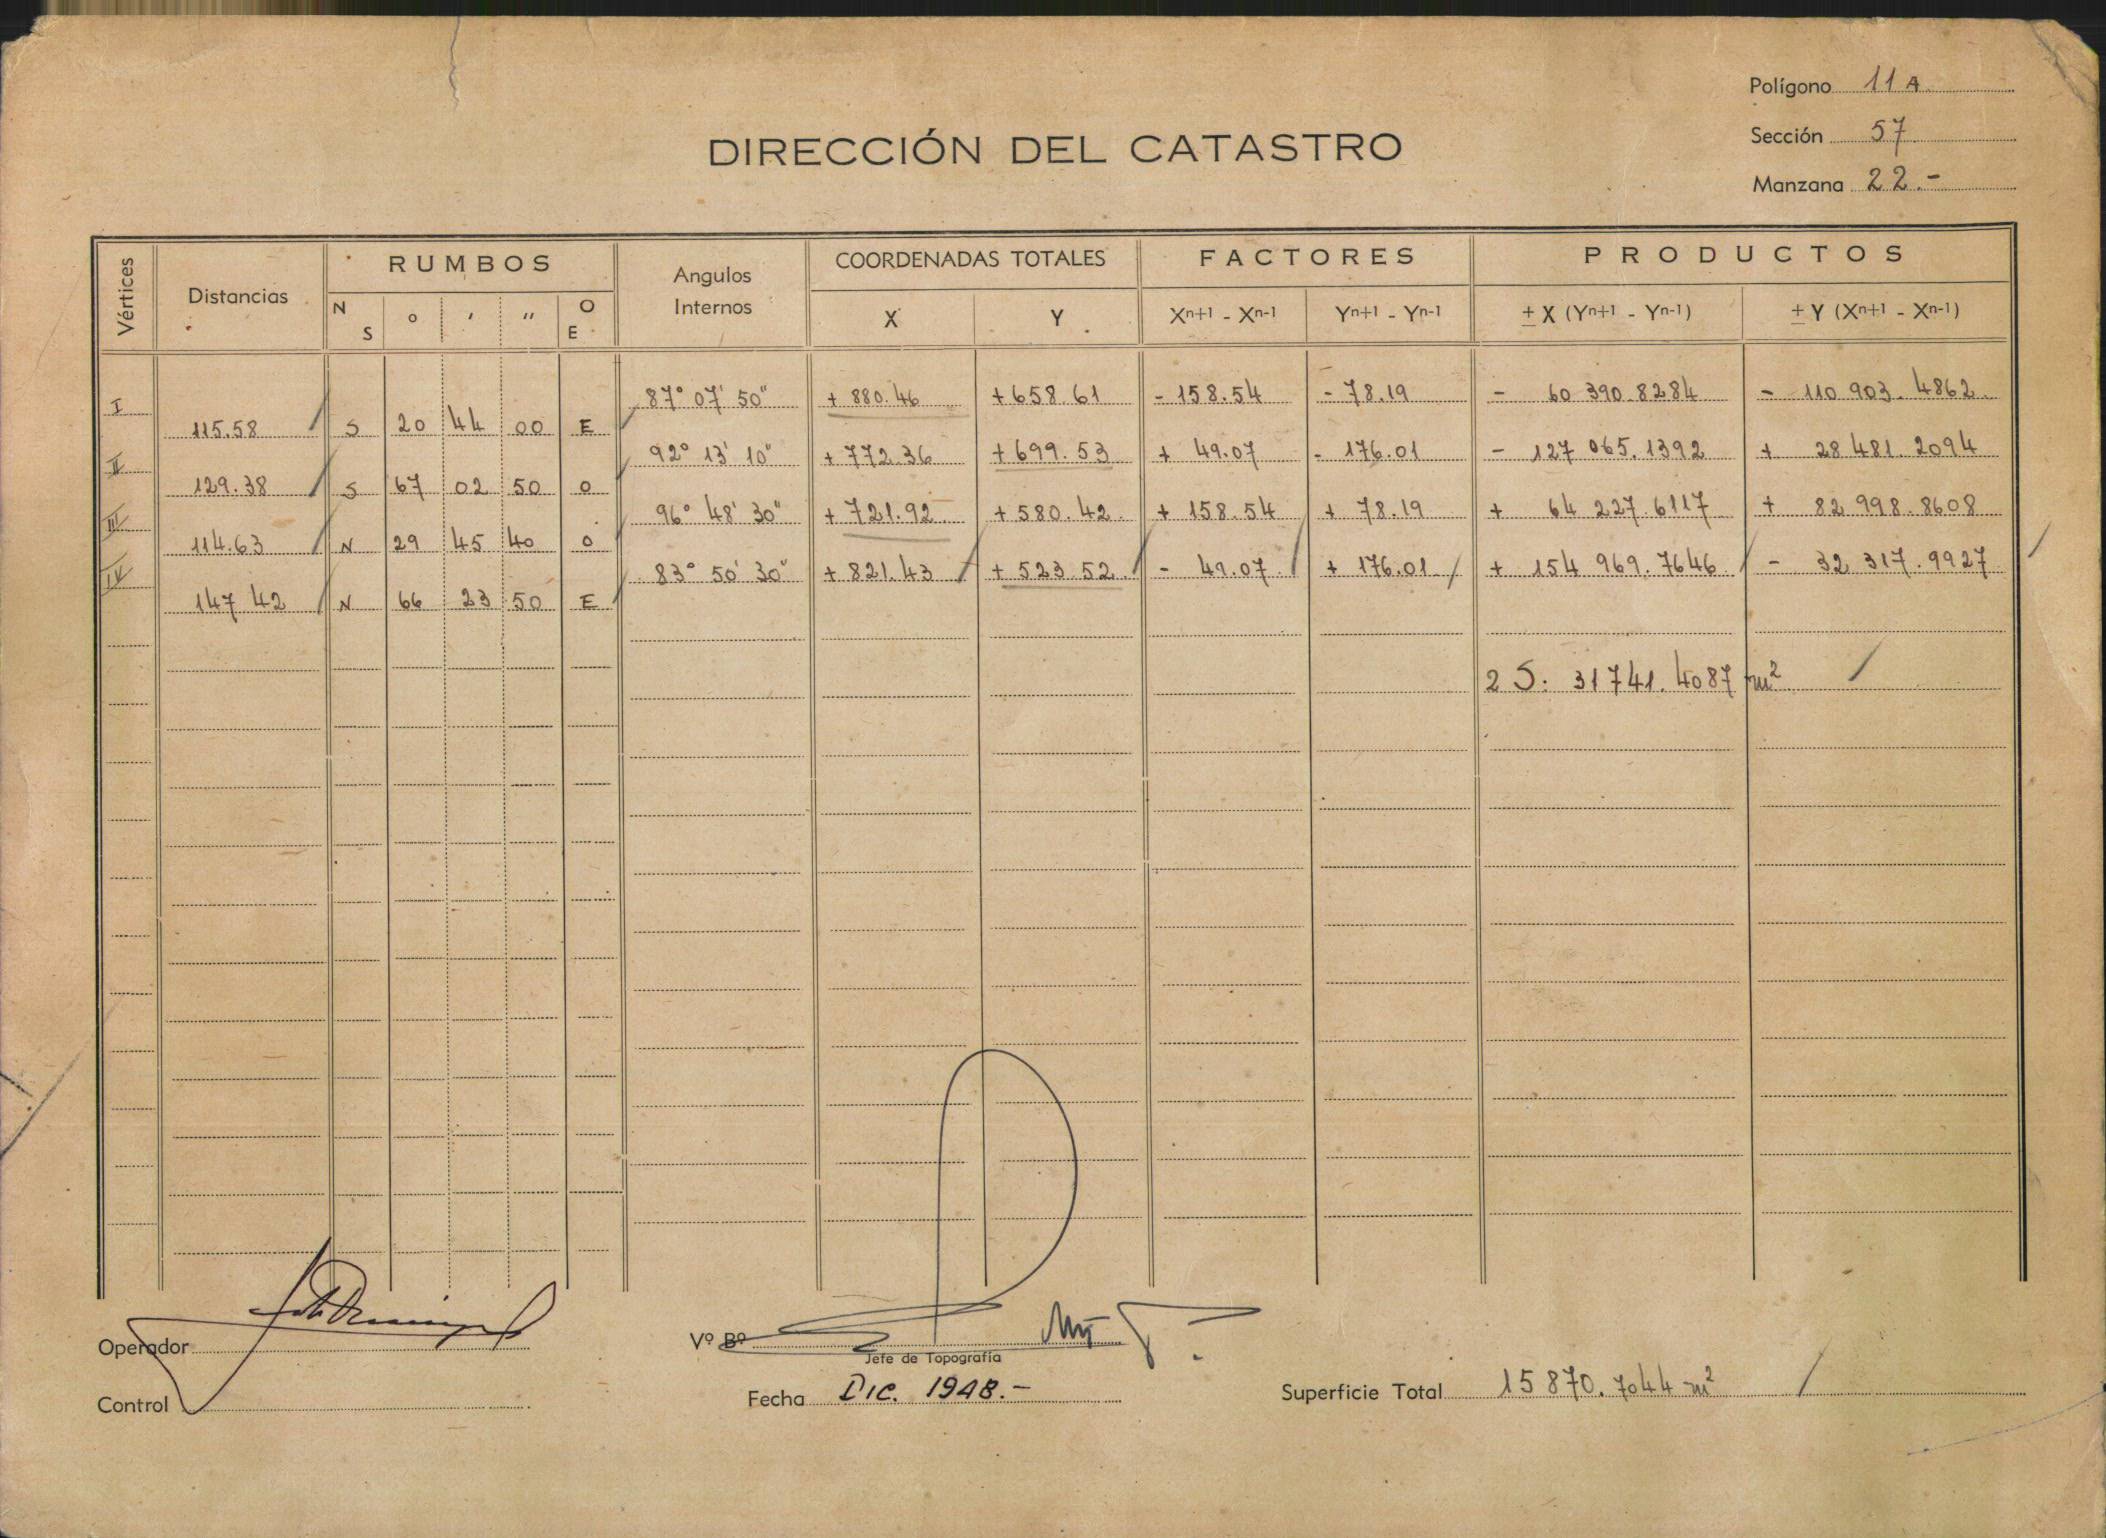 Polígono 11 A
Sección 57
Manzana 22.-
DIRECCIÓN DEL CATASTRO
Vértices Distancias RUMBOS Angulos Internos COORDENADAS TOTALES FACTORES PRODUCTOS
N S ° ′ ″ O E X Y Xn+1 - Xn-1 Yn+1 - Yn-1 ± X (Yn+1 - Yn-1) ± Y (Xn+1 - Xn-1)
I 87° 07' 50" + 880.46 + 658.61 - 158.54 - 78.19 - 60 390.8284 - 110 903.4862
115.58 S 20 44 00 E
II 92° 13' 10" + 772.36 + 699.53 + 49.07 - 176.01 - 127 065.1392 + 28 481.2094
129.38 S 67 02 50 O
III 96° 48' 30" + 721.92 + 580.42 + 158.54 + 78.19 + 64 227.6117 + 82 998.8608
114.63 N 29 45 40 O
IV 83° 50' 30" + 821.43 + 523.52 - 49.07 + 176.01 + 154 969.7646 - 32 317.9927
147.42 N 66 23 50 E
2 S: 31741.4087 m²
Operador
Vº Bº
Jefe de Topografía
Control
Fecha Dic. 1948.-
Superficie Total 15870.7044 m²